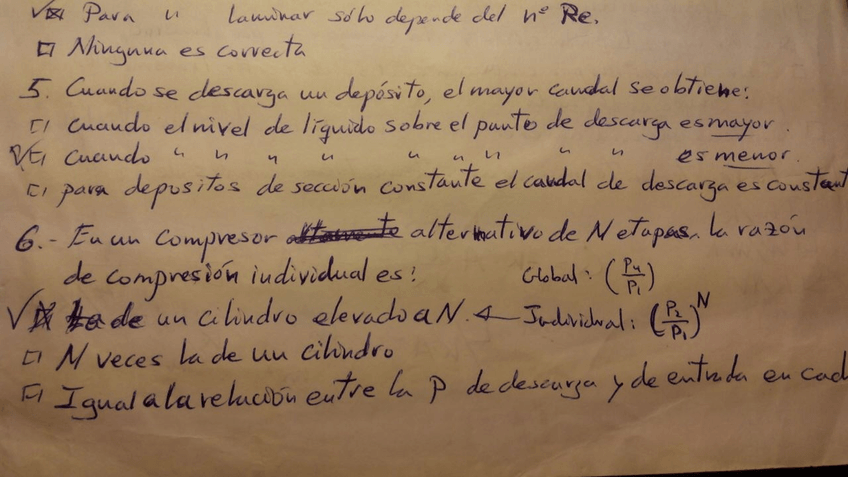 Para " laminar sólo depende del nº Re.
Ninguna es correcta
5. Cuando se descarga un depósito, el mayor caudal se obtiene:
Cuando el nivel de líquido sobre el punto de descarga es mayor.
Cuando " " " " " " " " " es menor.
para depositos de sección constante el caudal de descarga es constant
6.- En un compresor alternativo de N etapas la razón
de compresión individual es: Global: (P4/P1)
de un cilindro elevado a N. ← Individual: (P2/P1)^N
N veces la de un cilindro
Igual a la relación entre la P de descarga y de entrada en cad